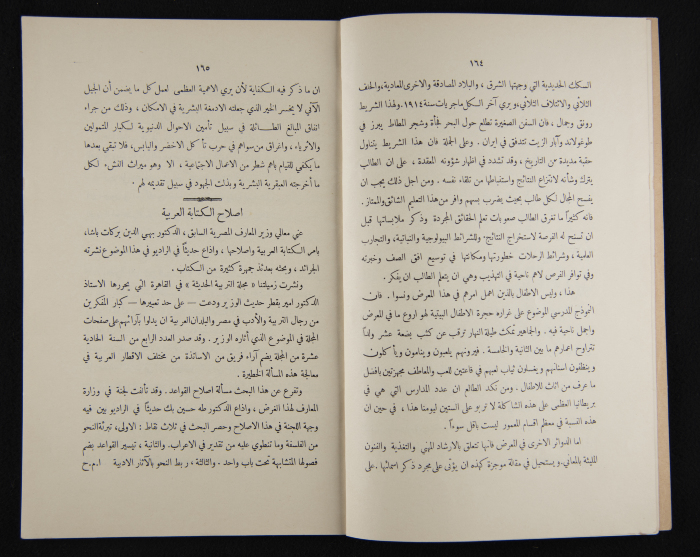 ١٦٤
السكك الحديدية التي وجهتها الشرق ، والبلاد المصادقة والاخرى المعادية، والحلف
الثلاثي والائتلاف الثلاثي، ويري آخر السكل ماجريات سنة ١٩١٤. ولهذا الشريط
رونق وجمال ، فان السفن الصغيرة تطلع حول البحر فجأة وشجر المطاط يبرز في
طوغولاند وآبار الزيت تتدفق في ايران . وعلى الجملة فان هذا الشريط يتناول
حقبة مديدة من التاريخ ، وقد تشدد في اظهار شؤونه المعقدة ، على ان الطالب
يترك وشأنه لانتزاع النتائج واستنباطها من تلقاء نفسه . ومن اجل ذلك يجب ان
يفسح المجال لكل طالب بحيث يضرب بسهم وافر من هذا التعليم الشائق والممتاز .
فانه كثيراً ما تعرق الطالب صعوبات تعلم الحقائق المجردة وذكر ملابساتها قبل
ان تسنح له الفرصة لاستخراج النتائج. وللشرائط البيولوجية والنباتية، والتجارب
العلمية ، وشرائط الرحلات خطورتها ومكانتها في توسيع افق الصف وخبرته
وفي توافر الفرص لاهم ناحية في التهذيب وهي ان يتعلم الطالب ان يفكر .
هذا ، وليس الاطفال بالذين اهمل امرهم في هذا المعرض ونسوا . فان
النموذج للدرسي الموضوع على غراره حجرة الاطفال البيتية لهو اروع ما في المعرض
واجمل ناحية فيه . والجماهير تمكث طيلة النهار ترقب عن كثب بضعة عشر ولداً
تتراوح اعمارهم ما بين الثانية والخامسة . فيرونهم يلعبون وينامون ويأكلون
وينظفون اسنانهم ويغسلون ثياب لعبهم في قاعتين للعب والمعاطف مجهزتين بافضل
ما عرف من اثاث للاطفال . ومن نكد الطالع ان عدد المدارس التي هي في
بريطانيا العظمى على هذه الشاكلة لا تربو على الستين ليومنا هذا ، في حين ان
هذه النسبة في معظم اقسام المعمور ليست باقل سوءاً .
اما الدوائر الاخرى في المعرض فانها تتعلق بالارشاد المهني والتغذية والفنون
المليئة بالمعاني. ويستحيل في مقالة موجزة كهذه ان يؤتى على مجرد ذكر اسمائها. على
١٦٥
ان ما ذكر فيه الكفاية لأن يري الاهمية العظمى لعمل كل ما يضمن أن الجيل
الآتي لا يخسر الخير الذي جعلته الادمغة البشرية في الامكان ، وذلك من جراء
انفاق المبالغ الطائلة في سبيل تأمين الاحوال الدنيوية لكبار المتمولين
والاثرياء ، واغراق من سواهم في حرب تأكل الاخضر واليابس، فلا تبقي بعدها
ما يكفي للقيام باهم شطر من الاعمال الاجتماعية ، الا وهو ميراث النشء لكل
ما أخرجته العبقرية البشرية وبذلت الجهود في سبيل تقديمه لهم .
اصلاح الكتابة العربية
عني معالي وزير المعارف المصرية السابق ، الدكتور بهي الدين بركات باشا،
بامر الكتابة العربية واصلاحها ، واذاع حديثاً في الراديو في هذا الموضوع نشرته
الجرائد ، وبحثه بعدئذ جمهرة كثيرة من الكتاب .
ونشرت زميلتنا « مجلة التربية الحديثة » في القاهرة التي يحررها الاستاذ
الدكتور امير بقطر حديث الوزير ودعت — على حد تعبيرها — كبار المفكرين
من رجال التربية والأدب في مصر والبلدان العربية ان يدلوا بآرائهم على صفحات
المجلة في الموضوع الذي أثاره الوزير . وقد صدر العدد الرابع من السنة الحادية
عشرة من المجلة يضم آراء فريق من الاساتذة من مختلف الاقطار العربية في
معالجة هذه المسألة الخطيرة .
وتفرع عن هذا البحث مسألة اصلاح القواعد . وقد تألفت لجنة في وزارة
المعارف لهذا الغرض ، واذاع الدكتور طه حسين بك حديثاً في الراديو بين فيه
وجهة اللجنة في هذا الاصلاح وحصر البحث في ثلاث نقاط : الاولى، تبرئة النحو
من الفلسفة وما تنطوي عليه من تقدير في الاعراب. والثانية ، تيسير القواعد بضم
فصولها المتشابهة تحت باب واحد . والثالثة ، ربط النحو بالآثار الادبية ا.م.ح